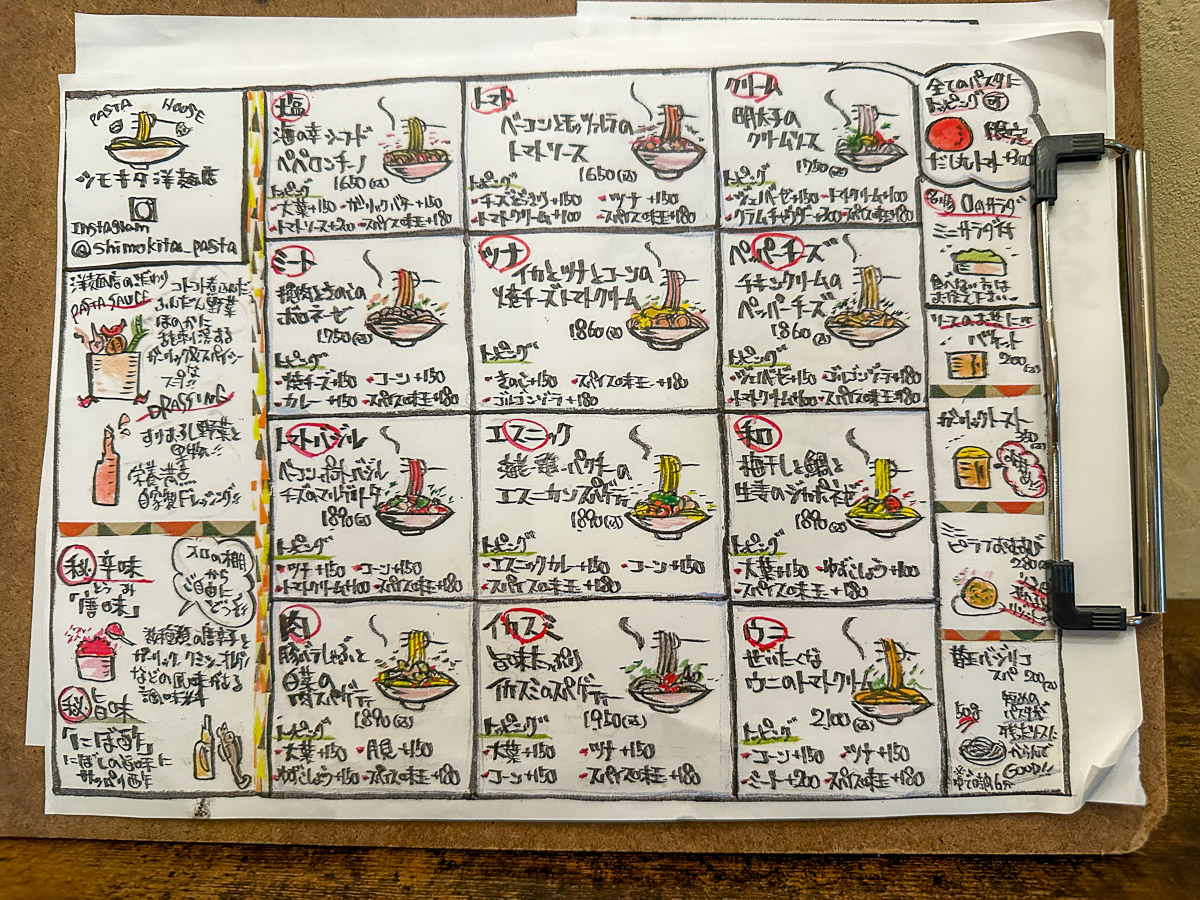 PASTA HOUSE
シモキタ洋麺店
Instagram
@shimokita_pasta
洋麺店のこだわり
PASTA SAUCE
コトコト煮込んだ
ふんだん野菜
ほのかに
ガーリック&スパイシー
は
すりおろし野菜と
栄養満点
自家製ドレッシング!!
㊙辛味
とうみ
「唐味」
スミの棚
から
ご自由に
どうぞ
数種類の唐辛子と
ガーリック、クミン、オレガノ
などの風味がある
調味料
㊙旨味
「にぼ酢」
にぼしの旨味に
サッパリ酢
塩
海の幸シーフード
ペペロンチーノ
1650(込)
トッピング
・大葉+150 ・ガーリックバター+150
・トマトソース+200 ・スパイスの味玉+180
トマト
ベーコンとモッツァレラの
トマトソース
1650(込)
トッピング
・チーズどっさり+150 ・ツナ+150
・トマトクリーム+100 ・スパイスの味玉+180
クリーム
明太子の
クリームソース
1750(込)
トッピング
・ジェノベーゼ+150 ・トマトクリーム+100
・クラムチャウダー+200 ・スパイスの味玉+180
ミート
粗挽肉ときのこの
ボロネーゼ
1750(込)
トッピング
・焼チーズ+150 ・コーン+150
・カレー+150 ・スパイスの味玉+180
ツナ
イカとツナとコーンの
焼チーズトマトクリーム
1860(込)
トッピング
・きのこ+150 ・スパイスの味玉+180
・ゴルゴンゾーラ+180
ペッパーチーズ
チキンクリームの
ペッパーチーズ
1860(込)
トッピング
・ジェノベーゼ+150 ・ゴルゴンゾーラ+180
・トマトクリーム+100 ・スパイスの味玉+180
トマトバジル
ベーコン・ポテト・バジル
チーズのマルゲリータ
1890(込)
トッピング
・ツナ+150 ・コーン+150
・トマトクリーム+100 ・スパイスの味玉+180
エスニック
海老・鶏・パクチーの
エスニカンスパゲティ
1890(込)
トッピング
・エスニックカレー+150 ・コーン+150
・スパイスの味玉+180
和
梅干しと鯛と
生麦のジャポネーゼ
1890(込)
トッピング
・大葉+150 ・ゆずこしょう+100
・スパイスの味玉+180
肉
豚バラしゃぶと
白菜の
肉スパゲティ
1890(込)
トッピング
・大葉+150 ・月見+150
・ゆずこしょう+150 ・スパイスの味玉+180
イカスミ
旨味たっぷり
イカスミのスパゲティー
1950(込)
トッピング
・大葉+150 ・ツナ+150
・コーン+150 ・スパイスの味玉+180
ウニ
ぜいたくな
ウニのトマトクリーム
2100(込)
トッピング
・コーン+150 ・ツナ+150
・ミート+200 ・スパイスの味玉+180
全てのパスタに
トッピング可
限定
だし丸トマト+300
名物 0のサラダ
ミニサラダ付
食べない方は
お伝え下さい。
ソースのお共に
バケット
200(込)
ガーリックトースト
350(込)
ミニ
ピラフおむすび
280(込)
替玉バジリコ
スパ 500(込)
50g
短めの
パスタが
残ったソースに
からんで
GOOD!!
※ゆで時間6分